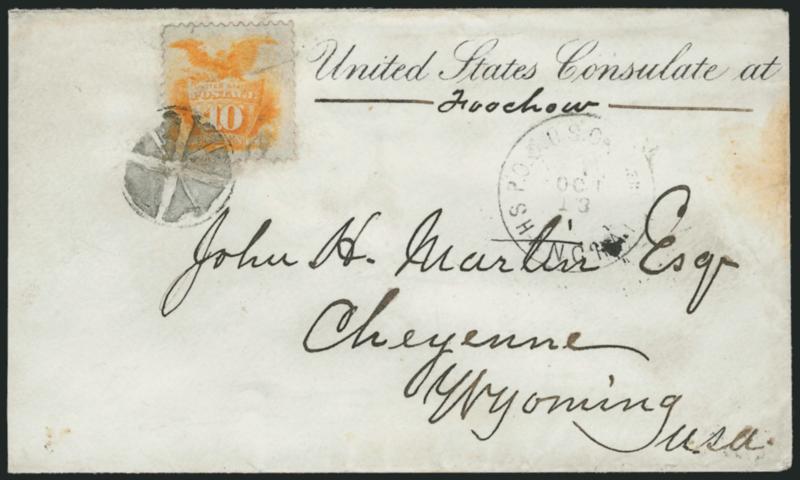 UNITED STATES
POSTAGE
10
United States Consulate at
Foochow
OCT
13
John H. Martin Esqr
Cheyenne
Wyoming
U.S.A.